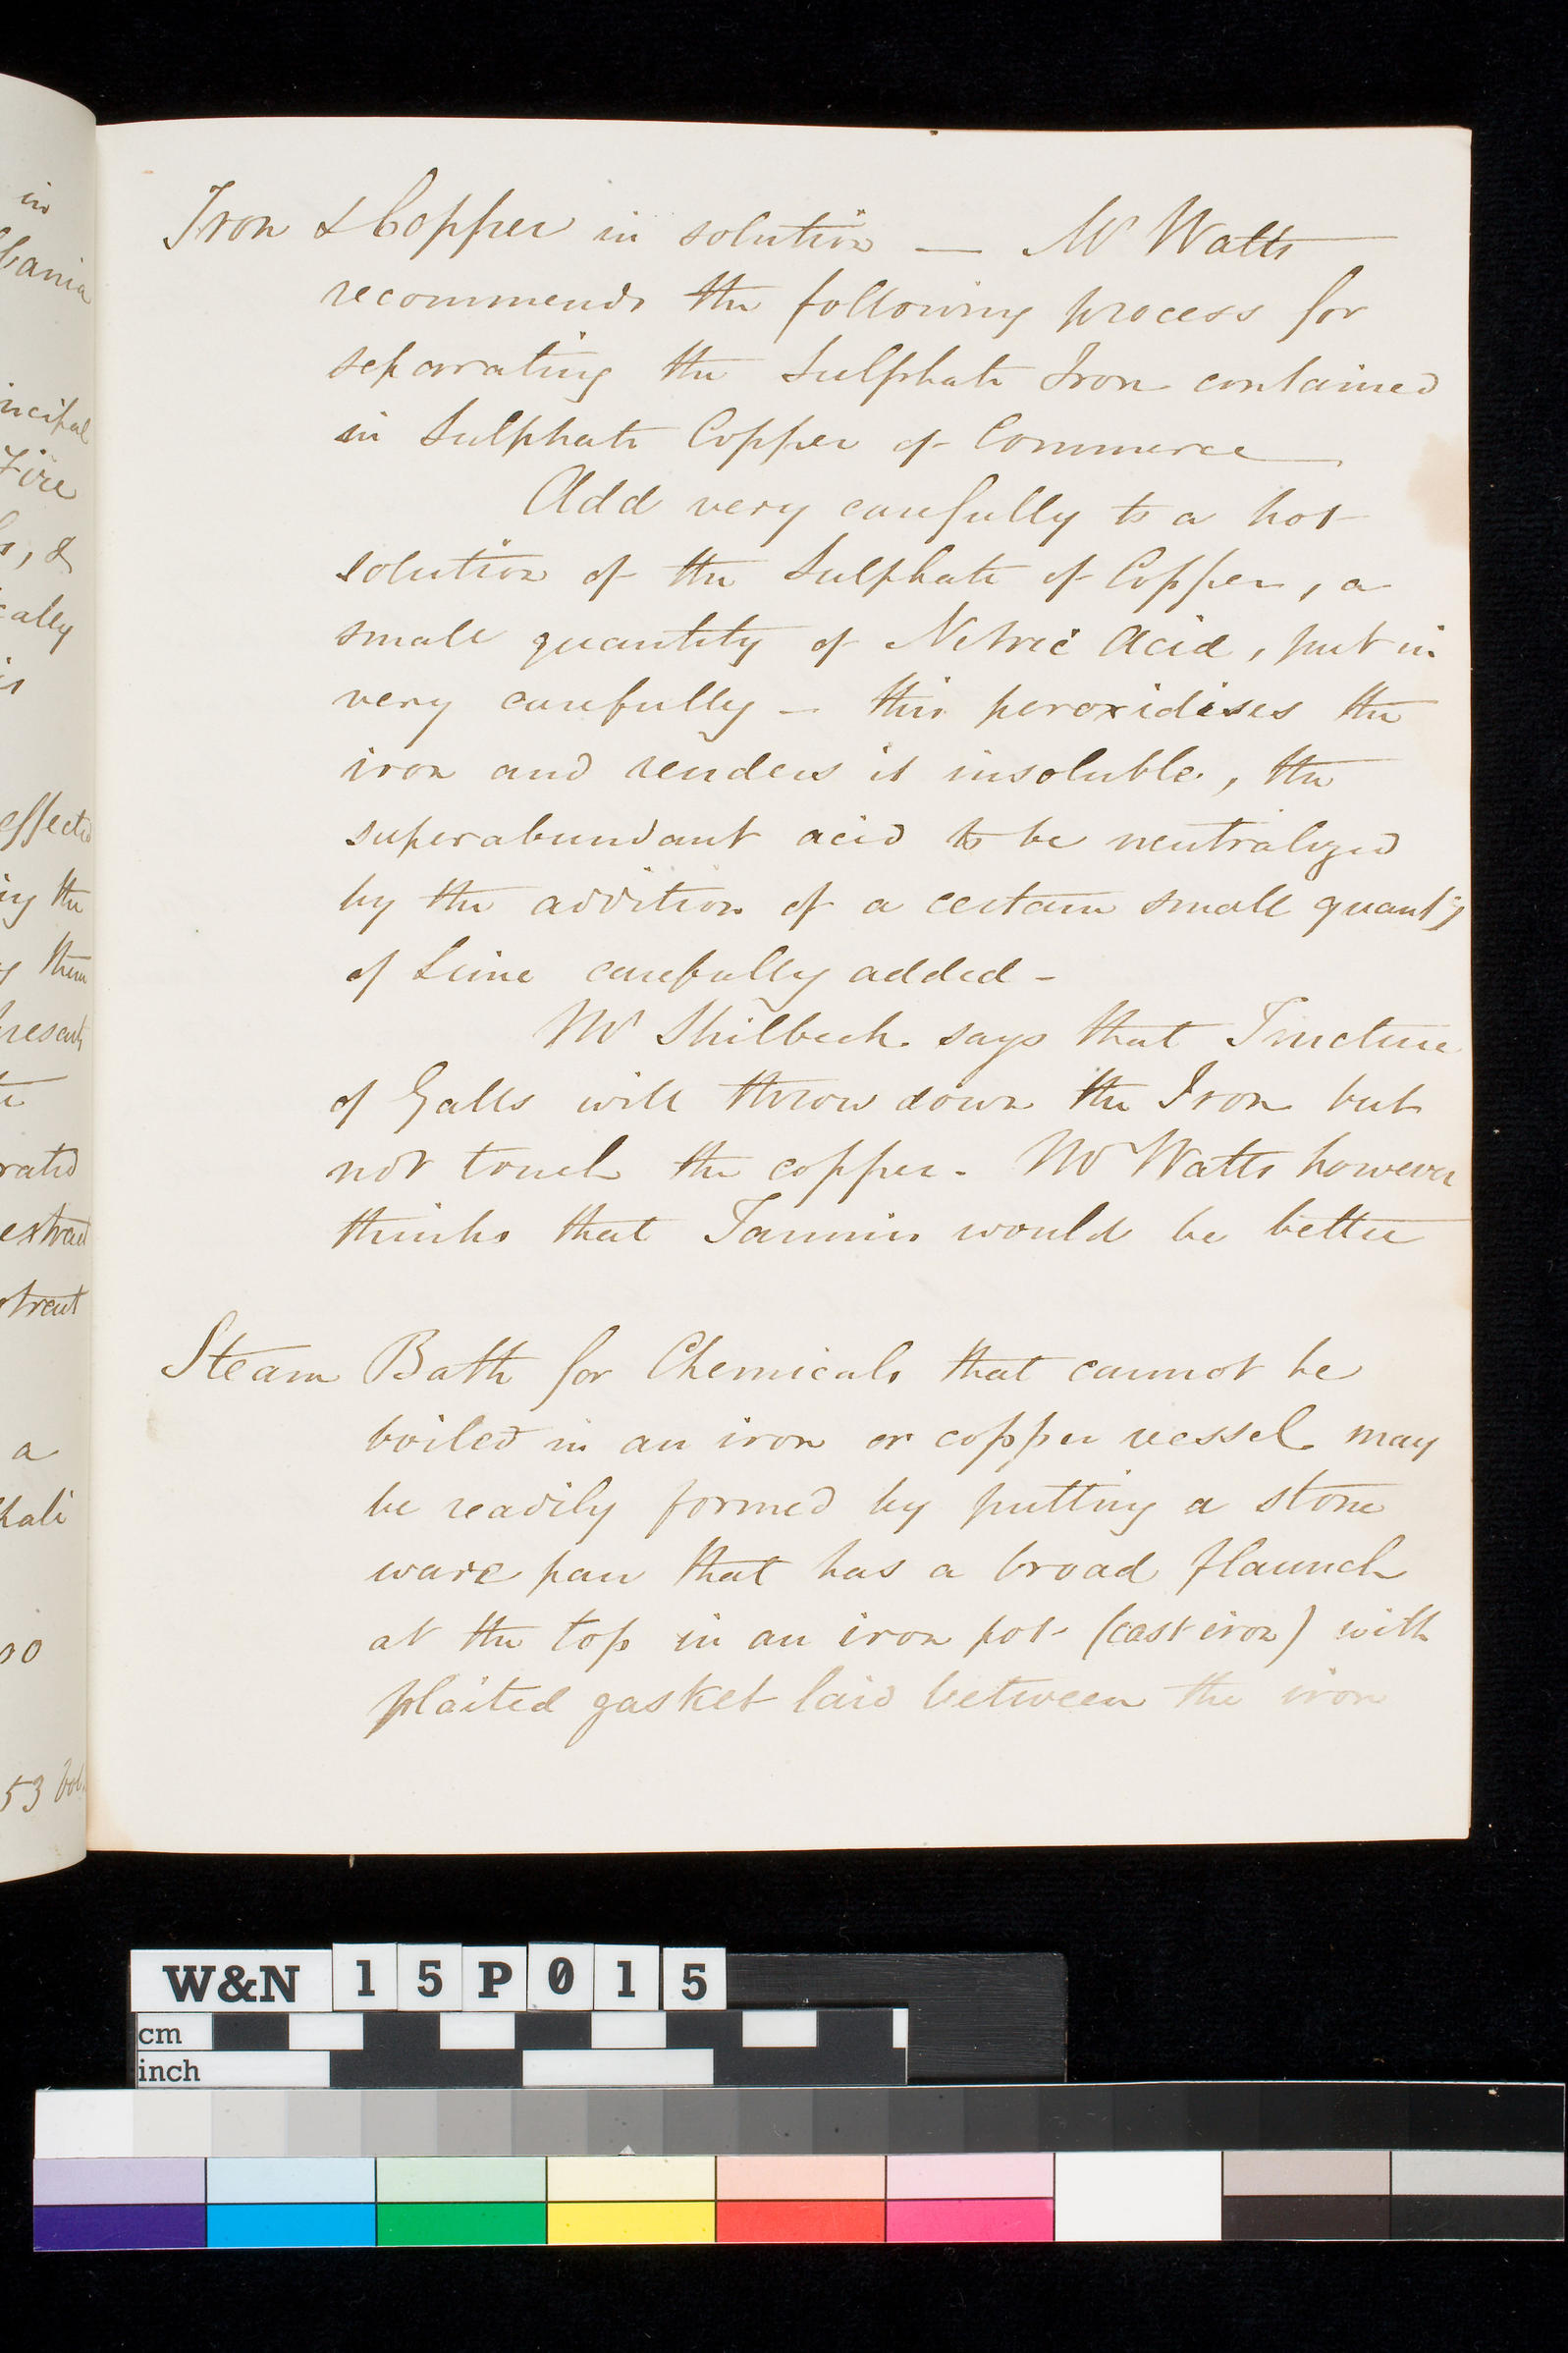 in
bania
incipal
Fire
s, &
cally
is
effected
ing the
g them
present
te
rated
extract
strent
a
kali
00
53 vol.
Iron & Copper in solution — Mr Watts
recommends the following process for
separating the Sulphate Iron contained
in Sulphate Copper of Commerce
Add very carefully to a hot
solution of the Sulphate of Copper, a
small quantity of Nitric Acid, put in
very carefully — this peroxidises the
iron and renders it insoluble, the
superabundant acid to be neutralized
by the addition of a certain small quanty
of Lime carefully added -
Mr Skilbeck says that Tincture
of Galls will throw down the Iron but
not touch the copper. Mr Watts however
thinks that Tannin would be better
Steam Bath for Chemicals that cannot be
boiled in an iron or copper vessel may
be readily formed by putting a stone
ware pan that has a broad flaunch
at the top in an iron pot (cast iron) with
plaited gasket laid between the iron
W&N 15P015
cm
inch